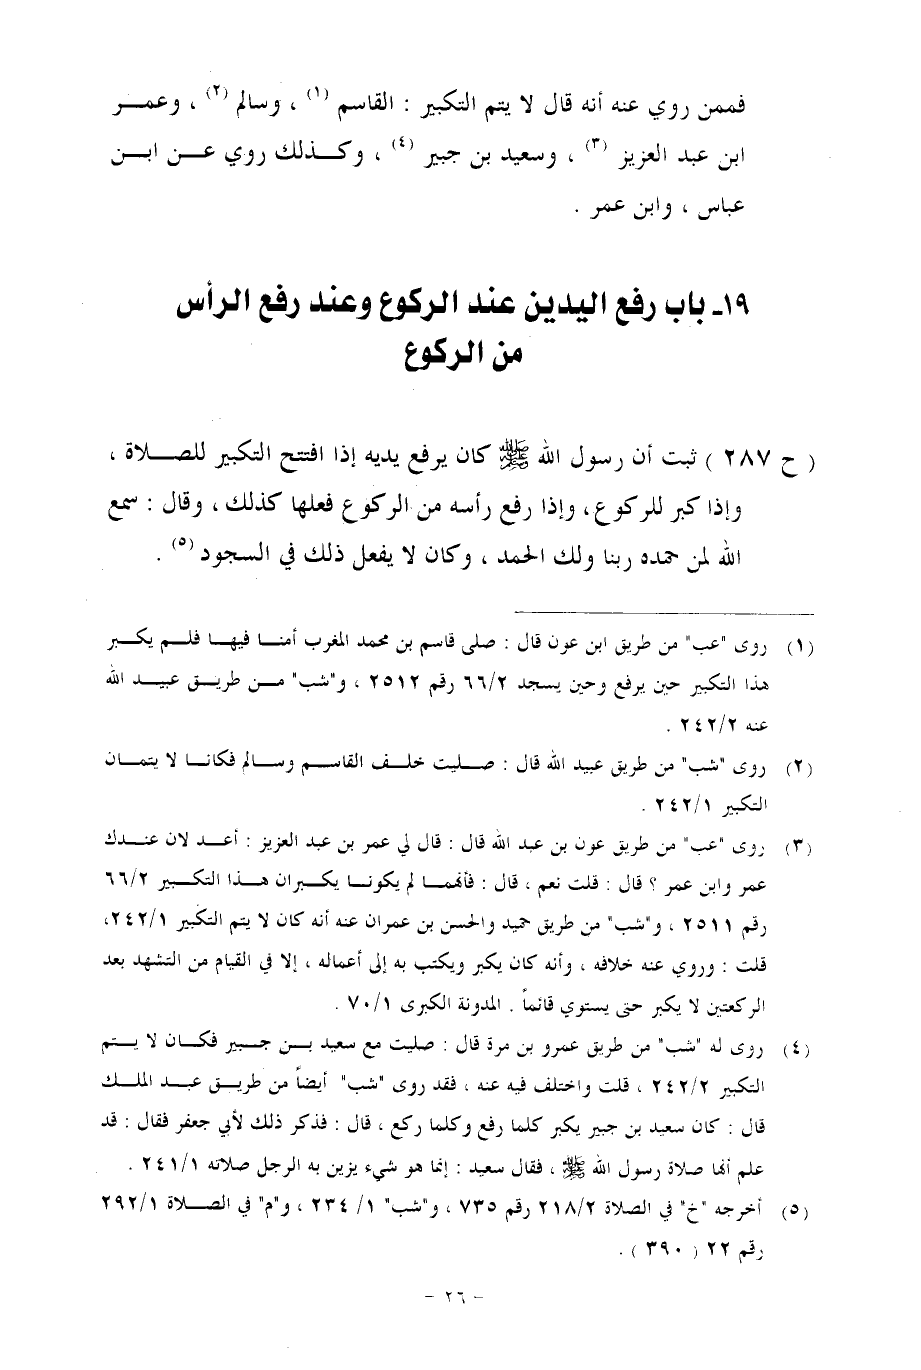 فممن روي عنه أنه قال لا يتم التكبير : القاسم (١) ، وسالم (٢) ، وعمـــر
ابن عبد العزيز (٣) ، وسعيد بن جبير (٤) ، وكـــذلك روي عـــن ابـــن
عباس ، وابن عمر .
١٩ـ باب رفع اليدين عند الركوع وعند رفع الرأس
من الركوع
( ح ٢٨٧ ) ثبت أن رسول الله ﷺ كان يرفع يديه إذا افتتح التكبير للصـــلاة ،
وإذا كبر للركوع، وإذا رفع رأسه من الركوع فعلها كذلك ، وقال : سمع
الله لمن حمده ربنا ولك الحمد ، وكان لا يفعل ذلك في السجود (٥) .
(١) روى "عب" من طريق ابن عون قال : صلى قاسم بن محمد المغرب أمنـــا فيهـــا فلـــم يكـــبر
هذا التكبير حين يرفع وحين يسجد ٦٦/٢ رقم ٢٥١٢ ، و"شب" مـــن طريـــق عبيـــد الله
عنه ٢٤٢/٢ .
(٢) روى "شب" من طريق عبيد الله قال : صـــليت خلـــف القاســـم وســـالم فكانـــا لا يتمـــان
التكبير ٢٤٢/١ .
(٣) روى "عب" من طريق عون بن عبد الله قال : قال لي عمر بن عبد العزيز : أعـــد لان عنـــدك
عمر وابن عمر ؟ قال : قلت نعم ، قال : فأنهمـــا لم يكونـــا يكـــبران هـــذا التكـــبير ٦٦/٢
رقم ٢٥١١ ، و"شب" من طريق حميد والحسن بن عمران عنه أنه كان لا يتم التكبير ٢٤٢/١،
قلت : وروي عنه خلافه ، وأنه كان يكبر ويكتب به إلى أعماله ، إلا في القيام من التشهد بعد
الركعتين لا يكبر حتى يستوي قائماً . المدونة الكبرى ٧٠/١ .
(٤) روى له "شب" من طريق عمرو بن مرة قال : صليت مع سعيد بـــن جـــبير فكـــان لا يـــتم
التكبير ٢٤٢/٢ ، قلت واختلف فيه عنه ، فقد روى "شب" أيضاً من طريـــق عبـــد الملـــك
قال : كان سعيد بن جبير يكبر كلما رفع وكلما ركع ، قال : فذكر ذلك لأبي جعفر فقال : قد
علم أنها صلاة رسول الله ﷺ ، فقال سعيد : إنما هو شيء يزين به الرجل صلاته ٢٤١/١ .
(٥) أخرجه "خ" في الصلاة ٢١٨/٢ رقم ٧٣٥ ، و"شب" ١/ ٢٣٤ ، و"م" في الصـــلاة ٢٩٢/١
رقم ٢٢ ( ٣٩٠ ) .
- ٢٦ -